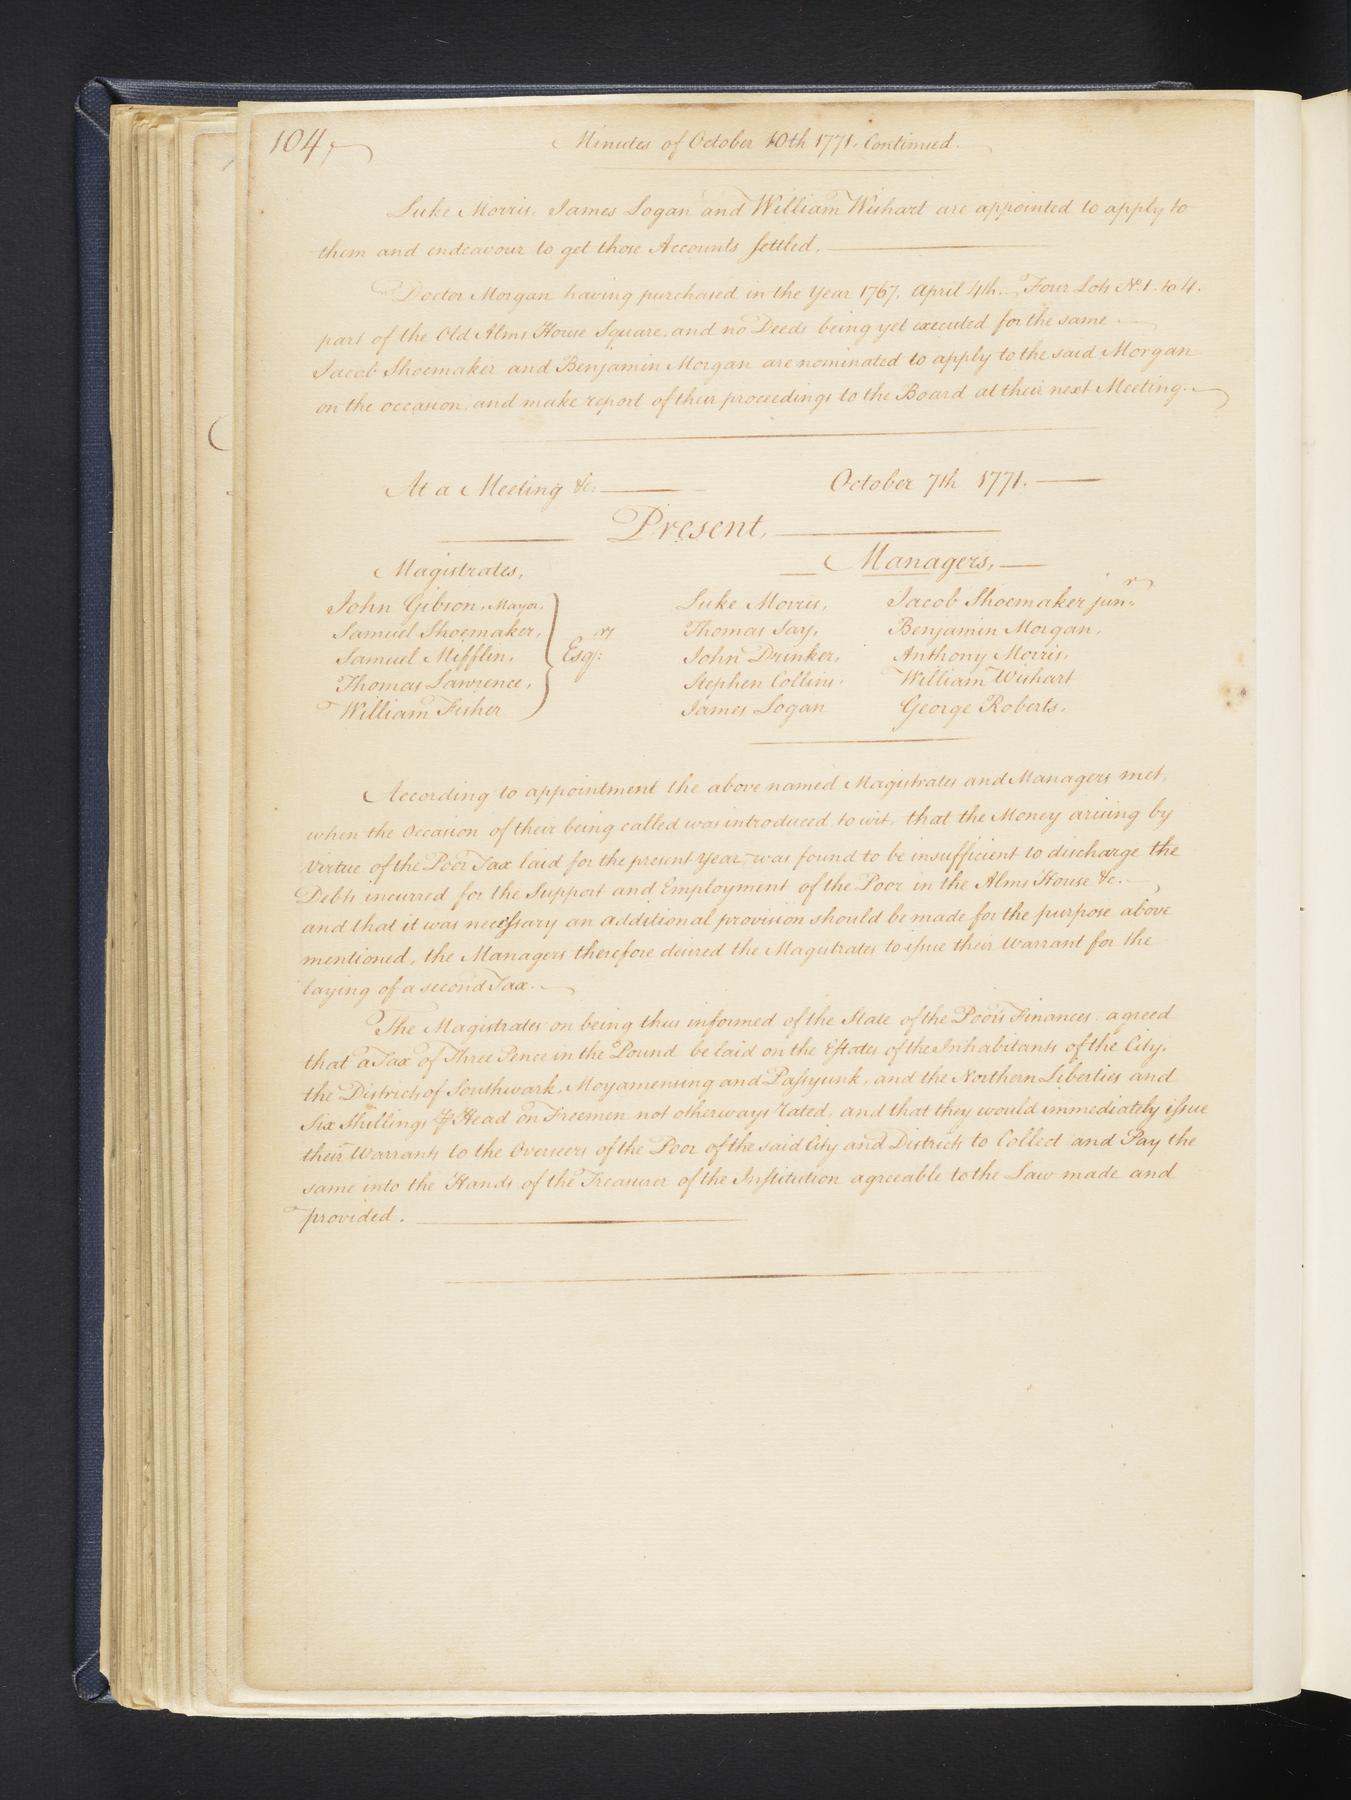 104,
Minutes of October 10th 1771. Continued.
Luke Morris, James Logan and William Wishart are appointed to apply to
them and endeavour to get those Accounts settled.
Doctor Morgan having purchased in the Year 1767. April 4th. Four Lots No. 1. to 4.
part of the Old Alms House Square, and no Deeds being yet executed for the same
Jacob Shoemaker and Benjamin Morgan are nominated to apply to the said Morgan
on the occasion, and make report of their proceedings to the Board at their next Meeting.
At a Meeting &c. October 7th 1771.
Present,
Magistrates,
John Gibson, Mayor,
Samuel Shoemaker,
Samuel Mifflin,
Thomas Lawrence,
William Fisher
Esqrs:
Managers,
Luke Morris, Jacob Shoemaker junr:
Thomas Say, Benjamin Morgan,
John Drinker, Anthony Morris,
Stephen Collins. William Wishart
James Logan George Roberts.
According to appointment the above named Magistrates and Managers met,
when the Occasion of their being called was introduced to wit, that the Money arising by
Virtue of the Poor Tax laid for the present Year, was found to be insufficient to discharge the
Debts incurred for the Support and Employment of the Poor in the Alms House &c.
and that it was necessary an additional provision should be made for the purpose above
mentioned, the Managers therefore desired the Magistrates to issue their Warrant for the
laying of a second Tax.
The Magistrates on being thus informed of the State of the Poor's Finances, agreed
that a Tax of Three Pence in the Pound be laid on the Estates of the Inhabitants of the City,
the Districts of Southwark, Moyamensing and Passyunk, and the Northern Liberties and
Six Shillings ⅌ Head on Freemen not otherways rated, and that they would immediately issue
their Warrants to the Overseers of the Poor of the said City and Districts to Collect and Pay the
same into the Hands of the Treasurer of the Institution agreeable to the Law made and
provided.